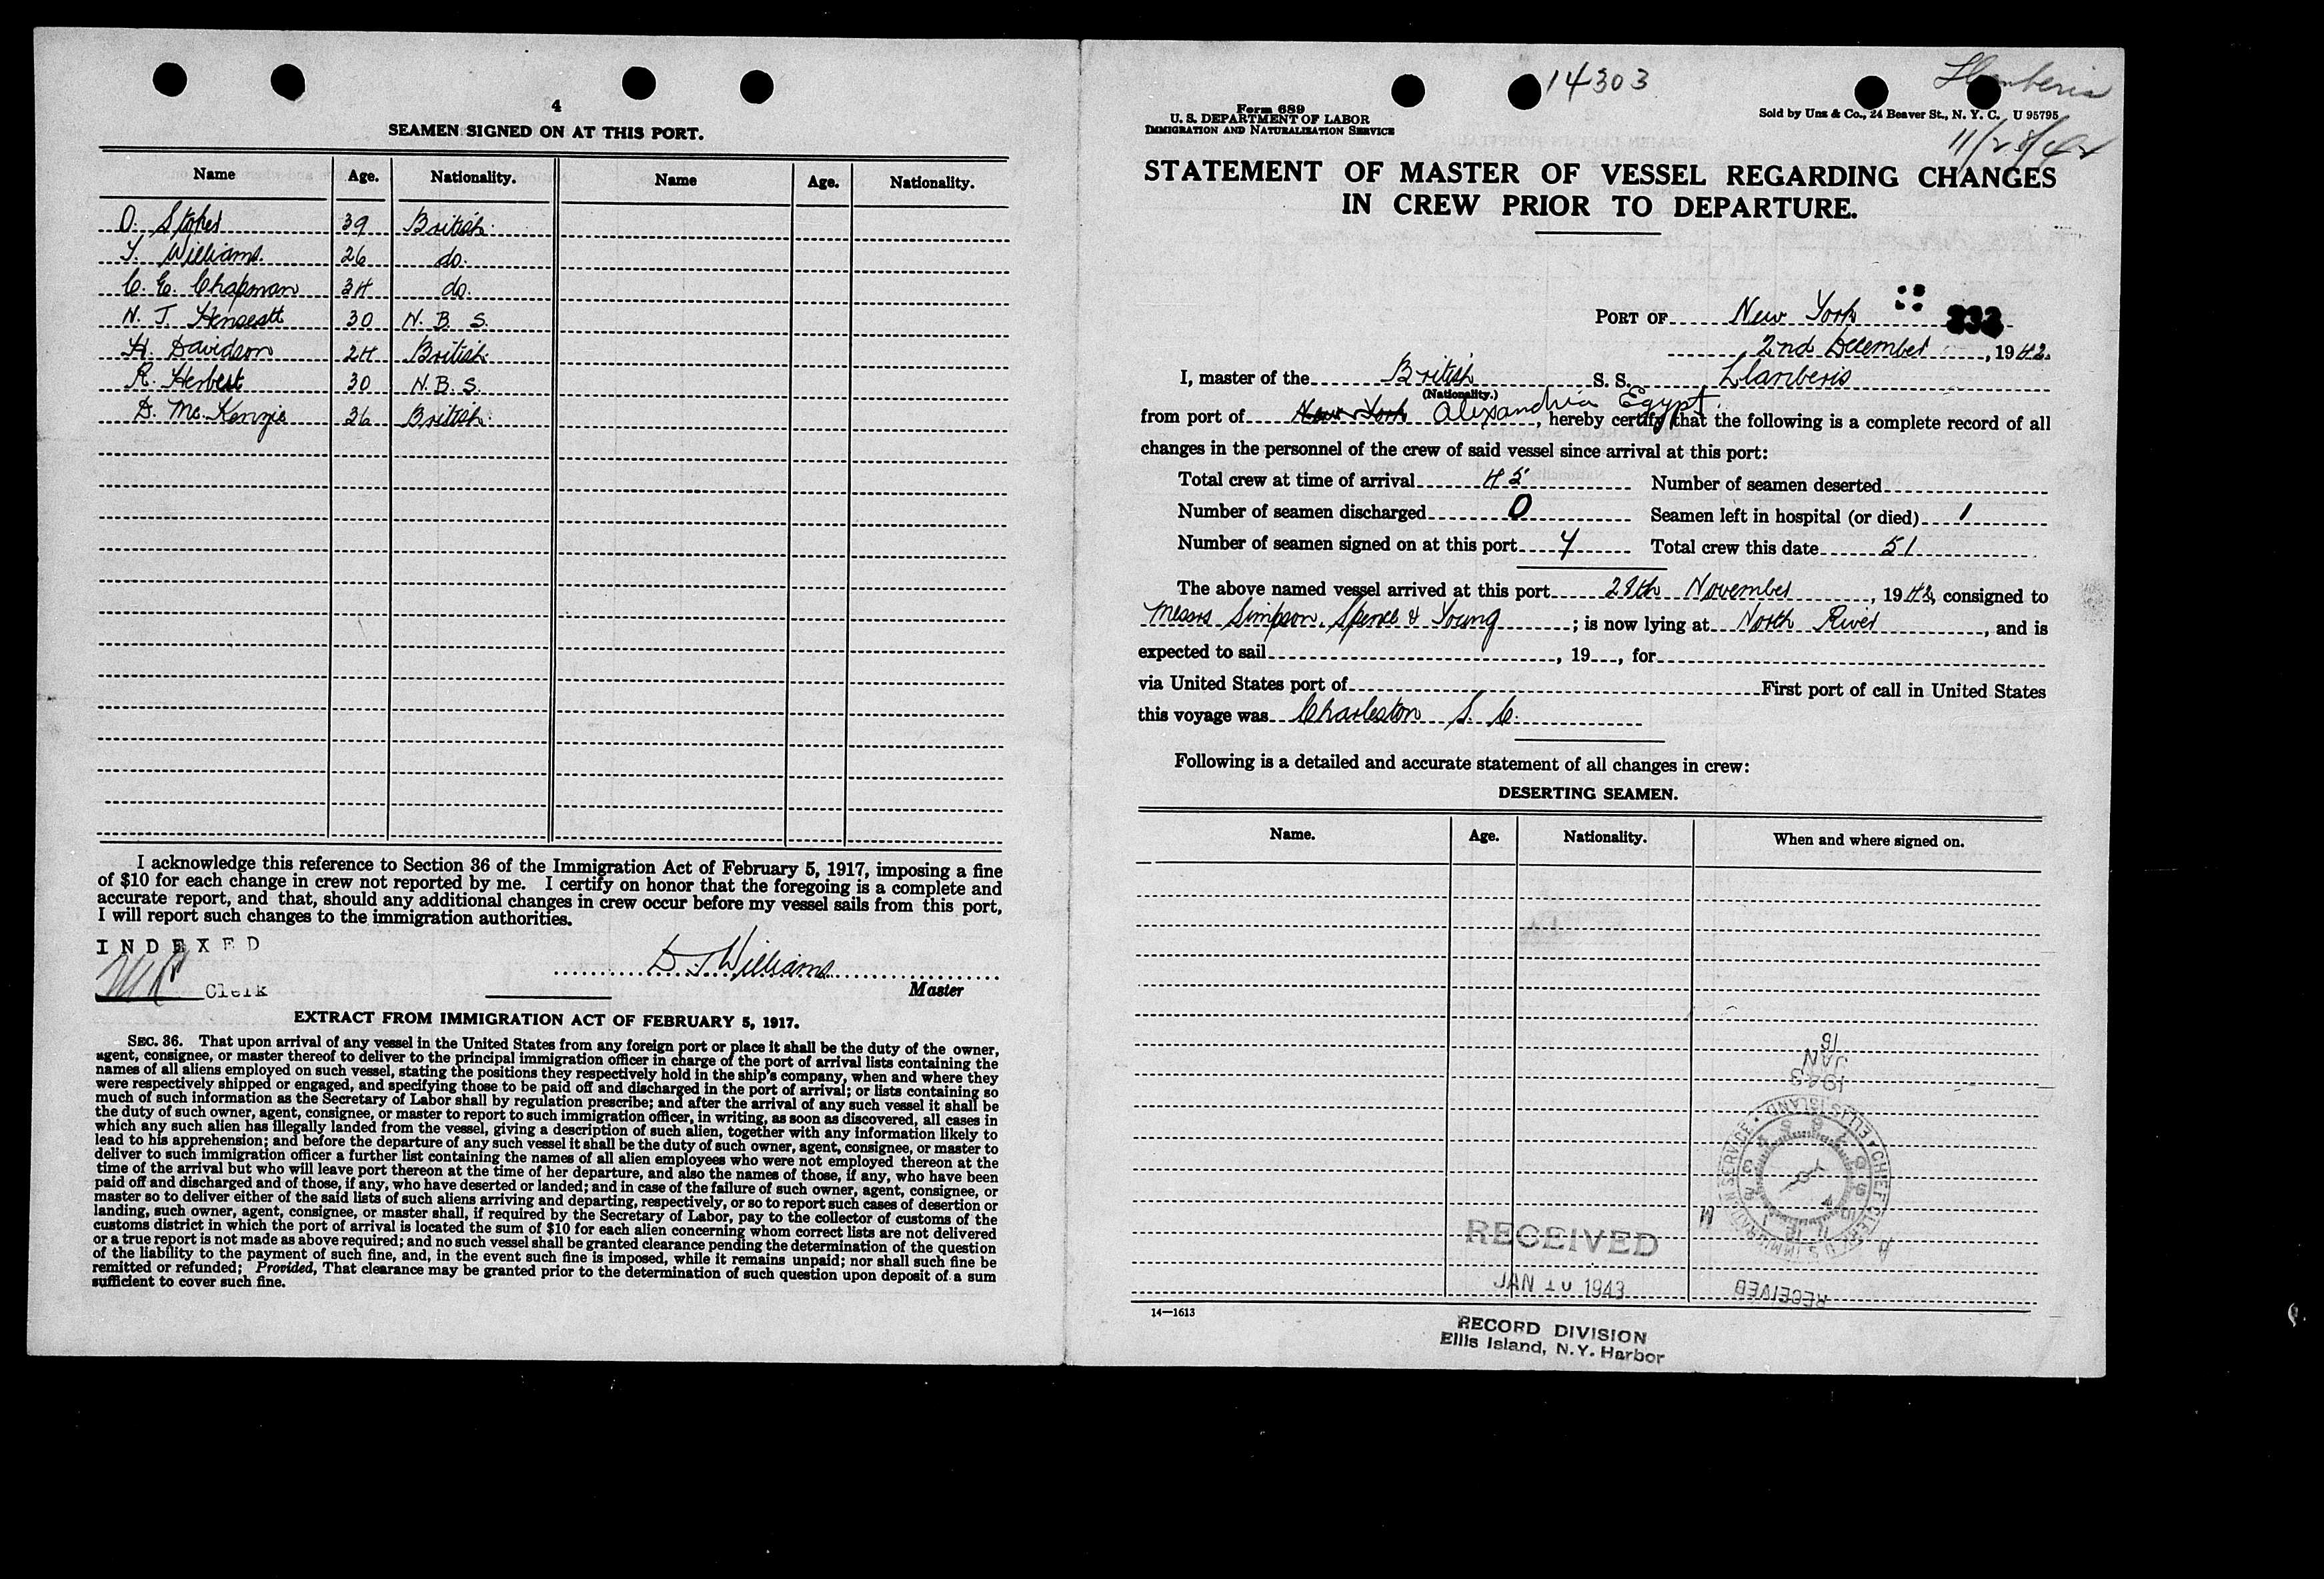 4
SEAMEN SIGNED ON AT THIS PORT.
Name Age. Nationality. Name Age. Nationality.
O. Stokes 39 British
Williams 26 do.
C. E. Chapman 34 do.
N. T. 30 N. B. S.
H. Davidson 24 British
R. Herbert 30 N. B. S.
D. McKenzie 36 British
I acknowledge this reference to Section 36 of the Immigration Act of February 5, 1917, imposing a fine
of $10 for each change in crew not reported by me. I certify on honor that the foregoing is a complete and
accurate report, and that, should any additional changes in crew occur before my vessel sails from this port,
I will report such changes to the immigration authorities.
INDEXED
Clerk
D. T. Williams
Master
EXTRACT FROM IMMIGRATION ACT OF FEBRUARY 5, 1917.
SEC. 36. That upon arrival of any vessel in the United States from any foreign port or place it shall be the duty of the owner,
agent, consignee, or master thereof to deliver to the principal immigration officer in charge of the port of arrival lists containing the
names of all aliens employed on such vessel, stating the positions they respectively hold in the ship's company, when and where they
were respectively shipped or engaged, and specifying those to be paid off and discharged in the port of arrival; or lists containing so
much of such information as the Secretary of Labor shall by regulation prescribe; and after the arrival of any such vessel it shall be
the duty of such owner, agent, consignee, or master to report to such immigration officer, in writing, as soon as discovered, all cases in
which any such alien has illegally landed from the vessel, giving a description of such alien, together with any information likely to
lead to his apprehension; and before the departure of any such vessel it shall be the duty of such owner, agent, consignee, or master to
deliver to such immigration officer a further list containing the names of all alien employees who were not employed thereon at the
time of the arrival but who will leave port thereon at the time of her departure, and also the names of those, if any, who have been
paid off and discharged and of those, if any, who have deserted or landed; and in case of the failure of such owner, agent, consignee, or
master so to deliver either of the said lists of such aliens arriving and departing, respectively, or so to report such cases of desertion or
landing, such owner, agent, consignee, or master shall, if required by the Secretary of Labor, pay to the collector of customs of the
customs district in which the port of arrival is located the sum of $10 for each alien concerning whom correct lists are not delivered
or a true report is not made as above required; and no such vessel shall be granted clearance pending the determination of the question
of the liability to the payment of such fine, and, in the event such fine is imposed, while it remains unpaid; nor shall such fine be
remitted or refunded; Provided, That clearance may be granted prior to the determination of such question upon deposit of a sum
sufficient to cover such fine.
14303
Llanberis
Form 689
U. S. DEPARTMENT OF LABOR
IMMIGRATION AND NATURALIZATION SERVICE
Sold by Unz & Co., 24 Beaver St., N. Y. C. U 95795
11/28/42
STATEMENT OF MASTER OF VESSEL REGARDING CHANGES
IN CREW PRIOR TO DEPARTURE.
PORT OF New York
2nd December, 1942.
I, master of the British S. S. Llanberis
(Nationality.)
from port of New York Alexandria Egypt, hereby certify that the following is a complete record of all
changes in the personnel of the crew of said vessel since arrival at this port:
Total crew at time of arrival 45 Number of seamen deserted
Number of seamen discharged 0 Seamen left in hospital (or died) 1
Number of seamen signed on at this port 7 Total crew this date 51
The above named vessel arrived at this port 28th November, 1942, consigned to
Messrs Simpson, Spence & Young; is now lying at North River, and is
expected to sail , 19 , for
via United States port of First port of call in United States
this voyage was Charleston S. C.
Following is a detailed and accurate statement of all changes in crew:
DESERTING SEAMEN.
Name. Age. Nationality. When and where signed on.
1943
JAN
16
CHIEF CLERK U S IMMIGRATION SERVICE • ELLIS ISLAND •
RECEIVED
RECEIVED
JAN 1943
14—1613
RECORD DIVISION
Ellis Island, N.Y. Harbor